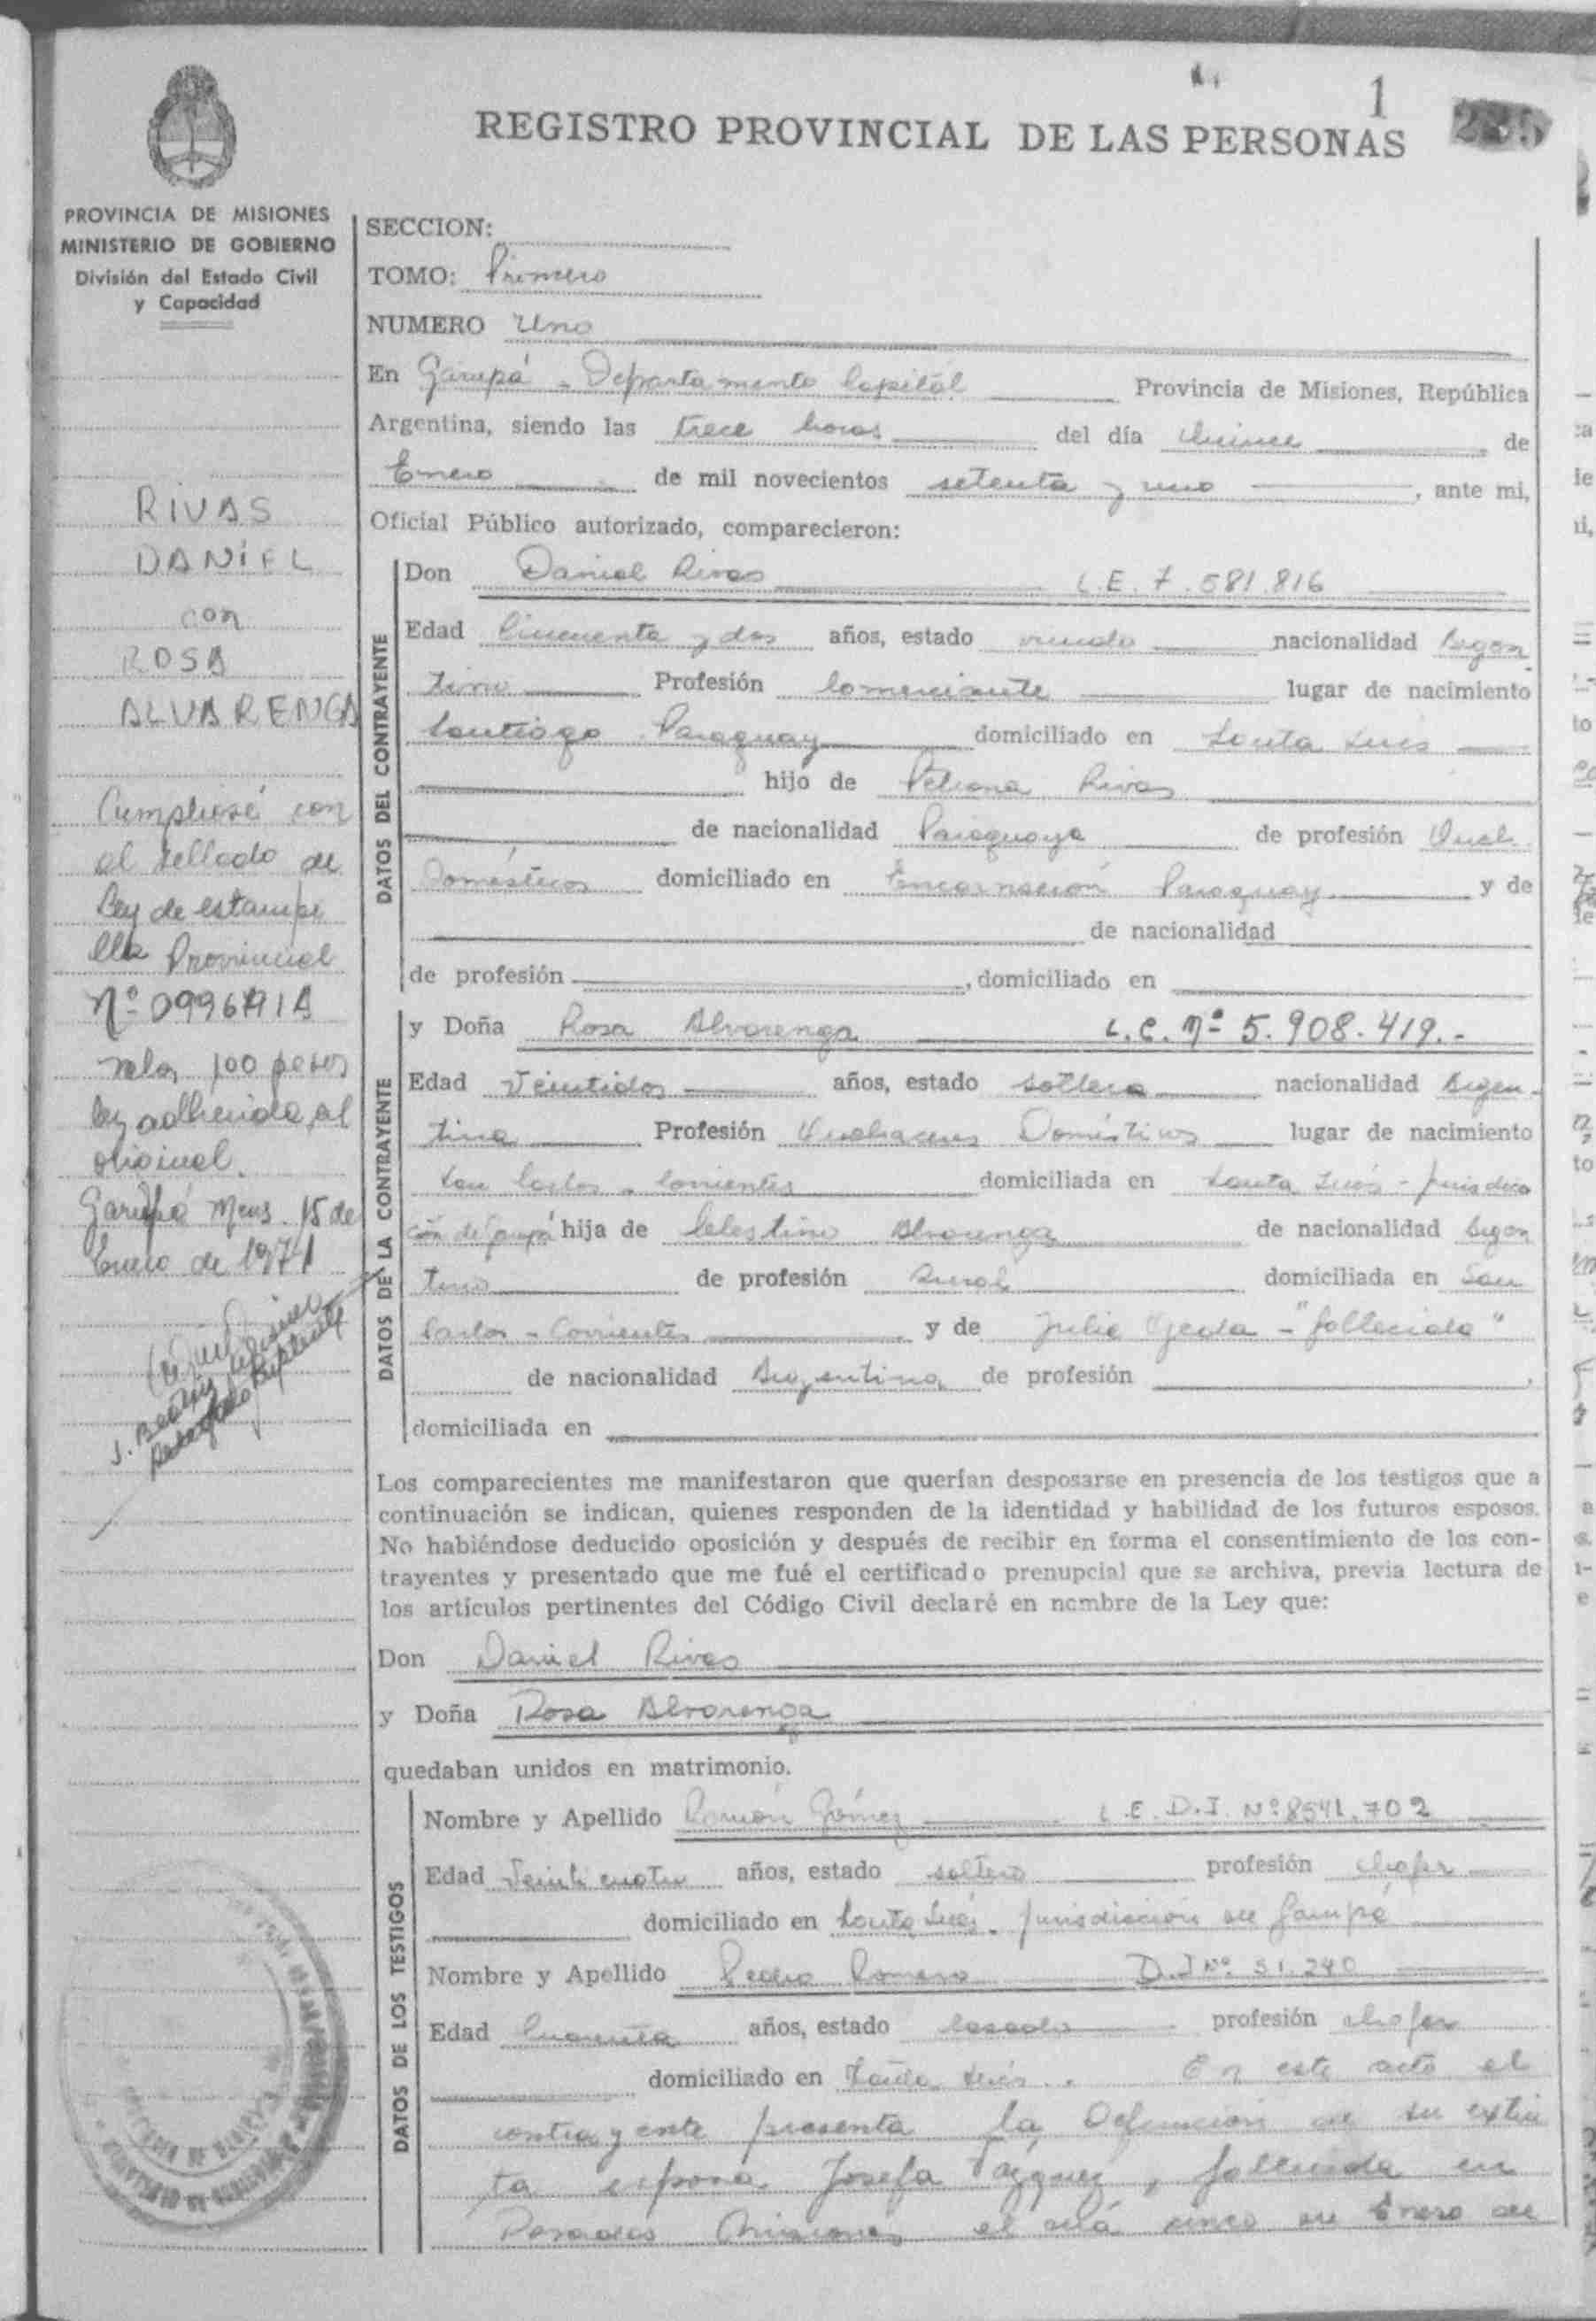 1
REGISTRO PROVINCIAL DE LAS PERSONAS
PROVINCIA DE MISIONES
MINISTERIO DE GOBIERNO
División del Estado Civil
y Capacidad
RIVAS
DANIEL
con
ROSA
ALVARENGA
Cumpliose con
el sellado de
Ley de estampi
lla Provincial
Nº 0996
valor 100 pesos
ley adherida al
original.
Garupá Mnes. 15 de
Enero de 1971
SECCION:
TOMO: Primero
NUMERO Uno
En Garupá - Departamento Capital Provincia de Misiones, República
Argentina, siendo las trece horas del día quince de
Enero de mil novecientos setenta y uno, ante mi,
Oficial Público autorizado, comparecieron:
DATOS DEL CONTRAYENTE
Don Daniel Rivas L.E. 7.581.816
Edad Cincuenta y dos años, estado viudo nacionalidad Argen
tino Profesión Comerciante lugar de nacimiento
Santiago Paraguay domiciliado en Santa Inés
hijo de Rivas
de nacionalidad Paraguaya de profesión Queh.
Domésticos domiciliado en Encarnación Paraguay y de
de nacionalidad
de profesión , domiciliado en
DATOS DE LA CONTRAYENTE
y Doña Rosa Alvarenga L.C. Nº 5.908.419.-
Edad Veintidos años, estado soltera nacionalidad Argen-
tina Profesión Quehaceres Domésticos lugar de nacimiento
San Carlos - Corrientes domiciliada en Santa Inés - jurisdic
ción de Garupá hija de Celestino Alvarenga de nacionalidad Argen
tino de profesión Rural domiciliada en San
Carlos - Corrientes y de Julia Ojeda - "fallecida"
de nacionalidad Argentina de profesión ,
domiciliada en
Los comparecientes me manifestaron que querían desposarse en presencia de los testigos que a
continuación se indican, quienes responden de la identidad y habilidad de los futuros esposos.
No habiéndose deducido oposición y después de recibir en forma el consentimiento de los con-
trayentes y presentado que me fué el certificado prenupcial que se archiva, previa lectura de
los artículos pertinentes del Código Civil declaré en nombre de la Ley que:
Don Daniel Rivas
y Doña Rosa Alvarenga
quedaban unidos en matrimonio.
DATOS DE LOS TESTIGOS
Nombre y Apellido Ramón Gómez L.E. D.I. Nº 8541.702
Edad Veinticuatro años, estado soltero profesión chofer
domiciliado en Santa Inés - jurisdicción de Garupá
Nombre y Apellido Pedro Romero D.I Nº 51.240
Edad Cuarenta años, estado casado profesión chofer
domiciliado en Santa Inés. En este acto el
contrayente presenta la Defunción de su extin
ta esposa Josefa Vázquez, fallecida en
Posadas Misiones el día cinco de Enero de